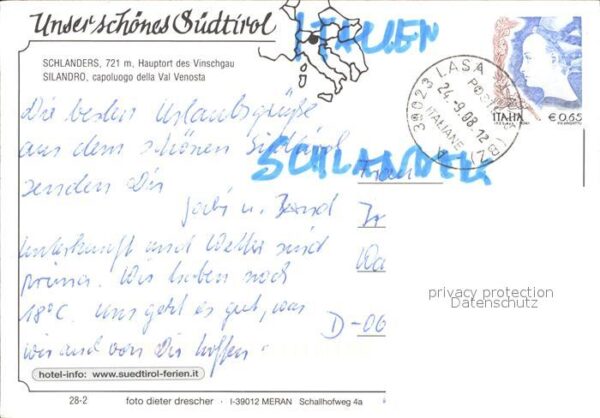 Unser schönes Südtirol
ITALIEN
SCHLANDERS, 721 m, Hauptort des Vinschgau
SILANDRO, capoluogo della Val Venosta
39023 LASA (BZ)
POSTE ITALIANE
24-9.08.12
ITALIA
€0,65
Die besten Urlaubsgrüße
aus dem schönen Südtirol
senden Dir
Gabi u. Bernd
SCHLANDERS
Unterkunft und Wetter sind
prima. Wir haben noch
18°C. Uns geht es gut, was
wir auch von Dir hoffen.
Frau
D-06
privacy protection
Datenschutz
hotel-info: www.suedtirol-ferien.it
28-2 foto dieter drescher · I-39012 MERAN Schallhofweg 4a